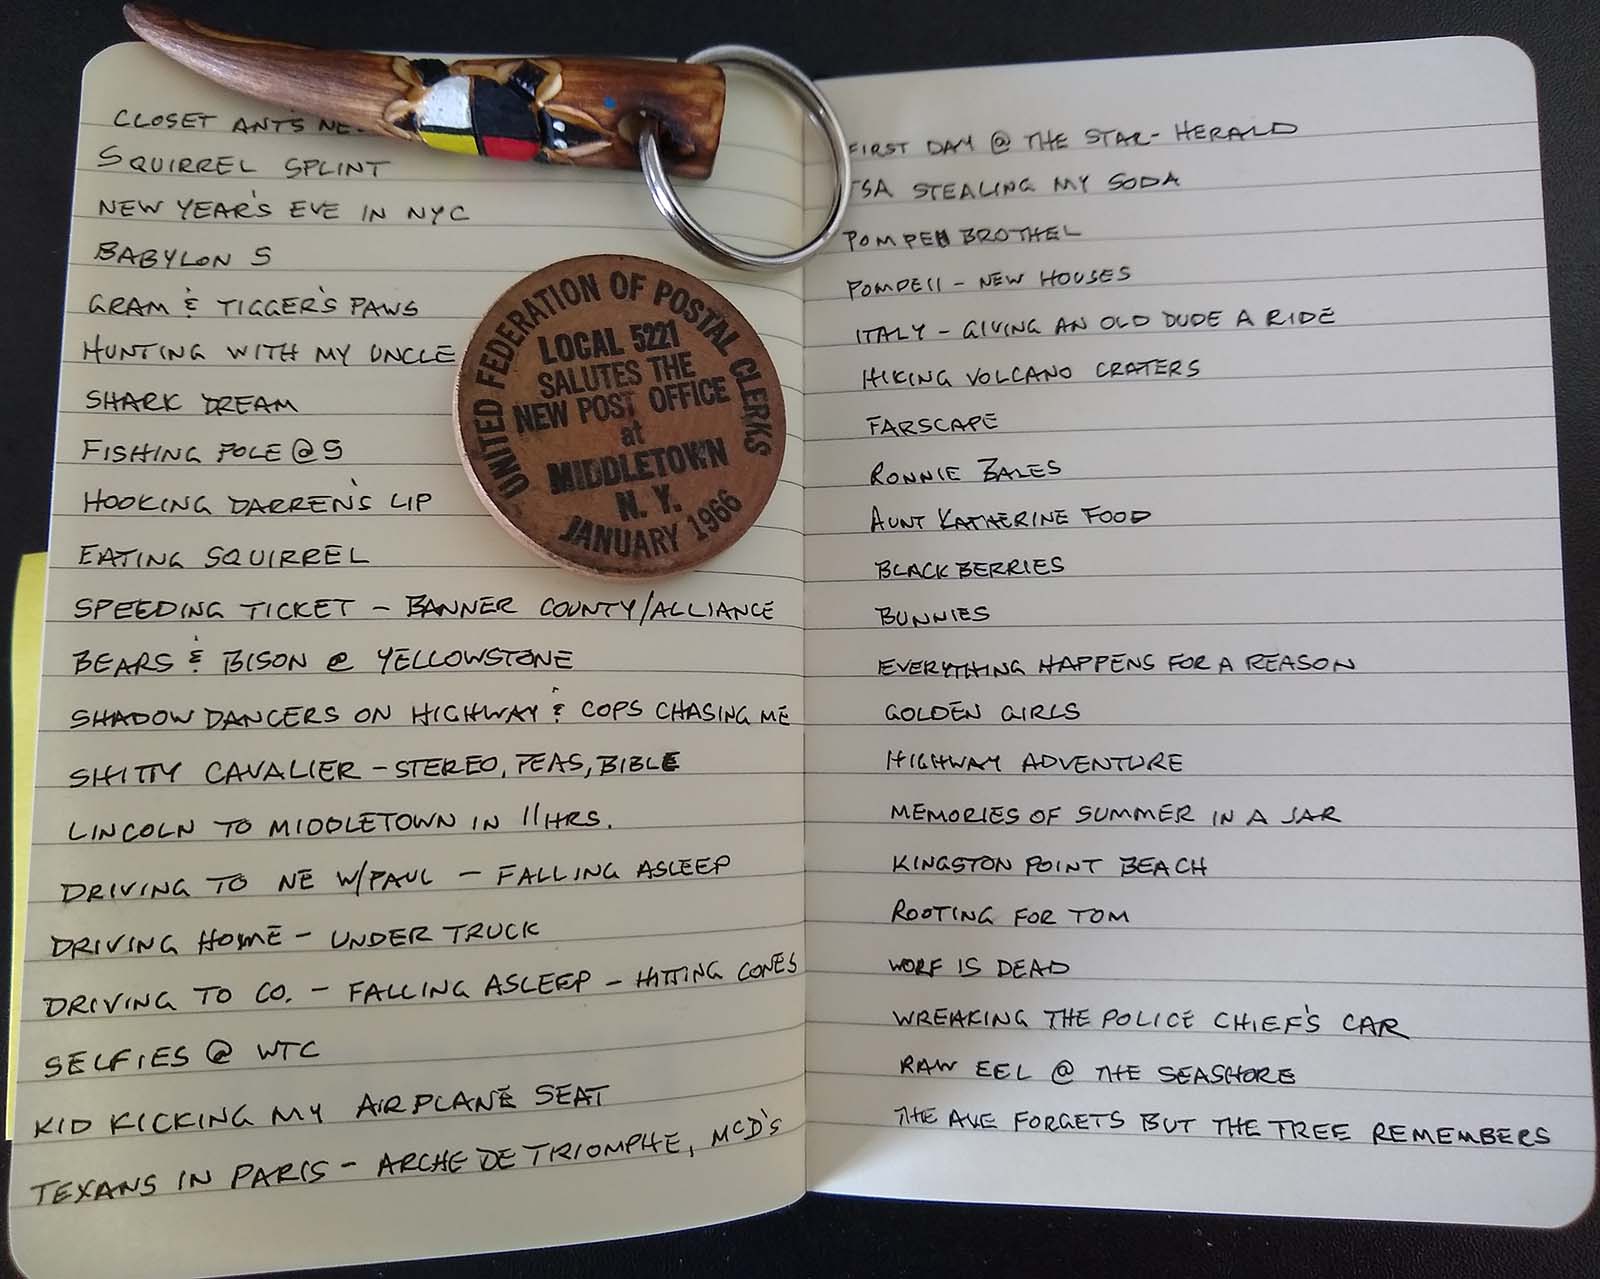 CLOSET ANTS
SQUIRREL SPLINT
NEW YEAR'S EVE IN NYC
BABYLON 5
GRAM & TIGGER'S PAWS
HUNTING WITH MY UNCLE
SHARK DREAM
FISHING POLE @ 5
HOOKING DARREN'S LIP
EATING SQUIRREL
SPEEDING TICKET - BANNER COUNTY/ALLIANCE
BEARS & BISON @ YELLOWSTONE
SHADOW DANCERS ON HIGHWAY & COPS CHASING ME
SHITTY CAVALIER - STEREO, PEAS, BIBLE
LINCOLN TO MIDDLETOWN IN 11 HRS.
DRIVING TO NE W/PAUL - FALLING ASLEEP
DRIVING HOME - UNDER TRUCK
DRIVING TO CO. - FALLING ASLEEP - HITTING CONES
SELFIES @ WTC
KID KICKING MY AIRPLANE SEAT
TEXANS IN PARIS - ARCHE DE TRIOMPHE, McD's
UNITED FEDERATION OF POSTAL CLERKS
LOCAL 5221
SALUTES THE
NEW POST OFFICE
at
MIDDLETOWN
N.Y.
JANUARY 1966
FIRST DAY @ THE STAR-HERALD
TSA STEALING MY SODA
POMPEII BROTHEL
POMPEII - NEW HOUSES
ITALY - GIVING AN OLD DUDE A RIDE
HIKING VOLCANO CRATERS
FARSCAPE
RONNIE BALES
AUNT KATHERINE FOOD
BLACKBERRIES
BUNNIES
EVERYTHING HAPPENS FOR A REASON
GOLDEN GIRLS
HIGHWAY ADVENTURE
MEMORIES OF SUMMER IN A JAR
KINGSTON POINT BEACH
ROOTING FOR TOM
WORF IS DEAD
WREAKING THE POLICE CHIEF'S CAR
RAW EEL @ THE SEASHORE
THE AXE FORGETS BUT THE TREE REMEMBERS